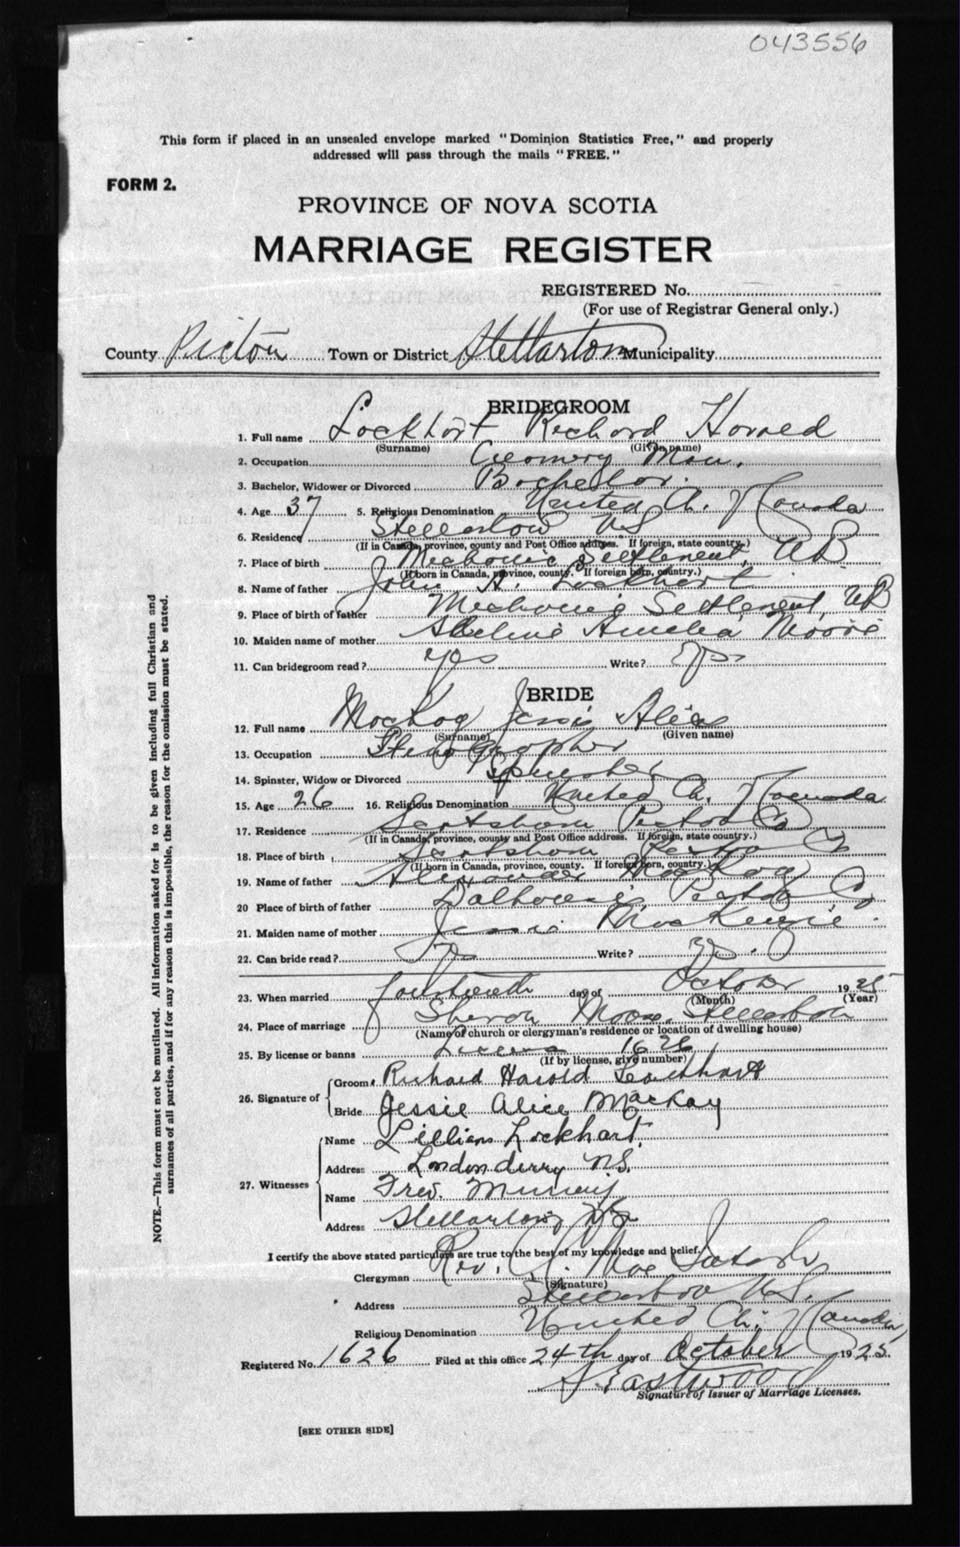 043556
This form if placed in an unsealed envelope marked "Dominion Statistics Free," and properly
addressed will pass through the mails "FREE."
FORM 2.
PROVINCE OF NOVA SCOTIA
MARRIAGE REGISTER
REGISTERED No.
(For use of Registrar General only.)
County Pictou Town or District Stellarton Municipality
BRIDEGROOM
1. Full name Lockhart Richard Harold
(Surname) (Given name)
2. Occupation Creamery Man.
3. Bachelor, Widower or Divorced Bachelor.
4. Age 37 5. Religious Denomination United Ch. of Canada
6. Residence Stellarton NS
(If in Canada, province, county and Post Office address. If foreign, state country.)
7. Place of birth Settlement, NB
(If born in Canada, province, county. If foreign born, country.)
8. Name of father John A. Lockhart
9. Place of birth of father Settlement, NB
10. Maiden name of mother Adeline Amelia Moore
11. Can bridegroom read? yes Write? yes
BRIDE
12. Full name MacKay Jessie Alice
(Surname) (Given name)
13. Occupation Stenographer
14. Spinster, Widow or Divorced Spinster
15. Age 26 16. Religious Denomination United Ch. of Canada
17. Residence Pictou Co
(If in Canada, province, county and Post Office address. If foreign, state country.)
18. Place of birth Pictou Co
(If born in Canada, province, county. If foreign born, country.)
19. Name of father Alexander MacKay
20 Place of birth of father Dalhousie Pictou Co
21. Maiden name of mother Jessie MacKenzie.
22. Can bride read? yes Write? yes.
23. When married fourteenth day of October 1925
(Month) (Year)
24. Place of marriage Sharon Manse, Stellarton
(Name of church or clergyman's residence or location of dwelling house)
25. By license or banns License 1626
(If by license, give number)
26. Signature of Groom Richard Harold Lockhart
Bride Jessie Alice MacKay
27. Witnesses Name Lillian Lockhart.
Address Londonderry N.S.
Name Fred. Murray
Address Stellarton, N.S.
I certify the above stated particulars are true to the best of my knowledge and belief.
Clergyman Rev. MacIntosh
(Signature)
Address Stellarton N.S.
Religious Denomination United Ch. of Canada
Registered No. 1626 Filed at this office 24th day of October 1925.
Eastwood
Signature of Issuer of Marriage Licenses.
[SEE OTHER SIDE]
NOTE.—This form must not be mutilated. All information asked for is to be given including full Christian and
surnames of all parties, and if for any reason this is impossible, the reason for the omission must be stated.